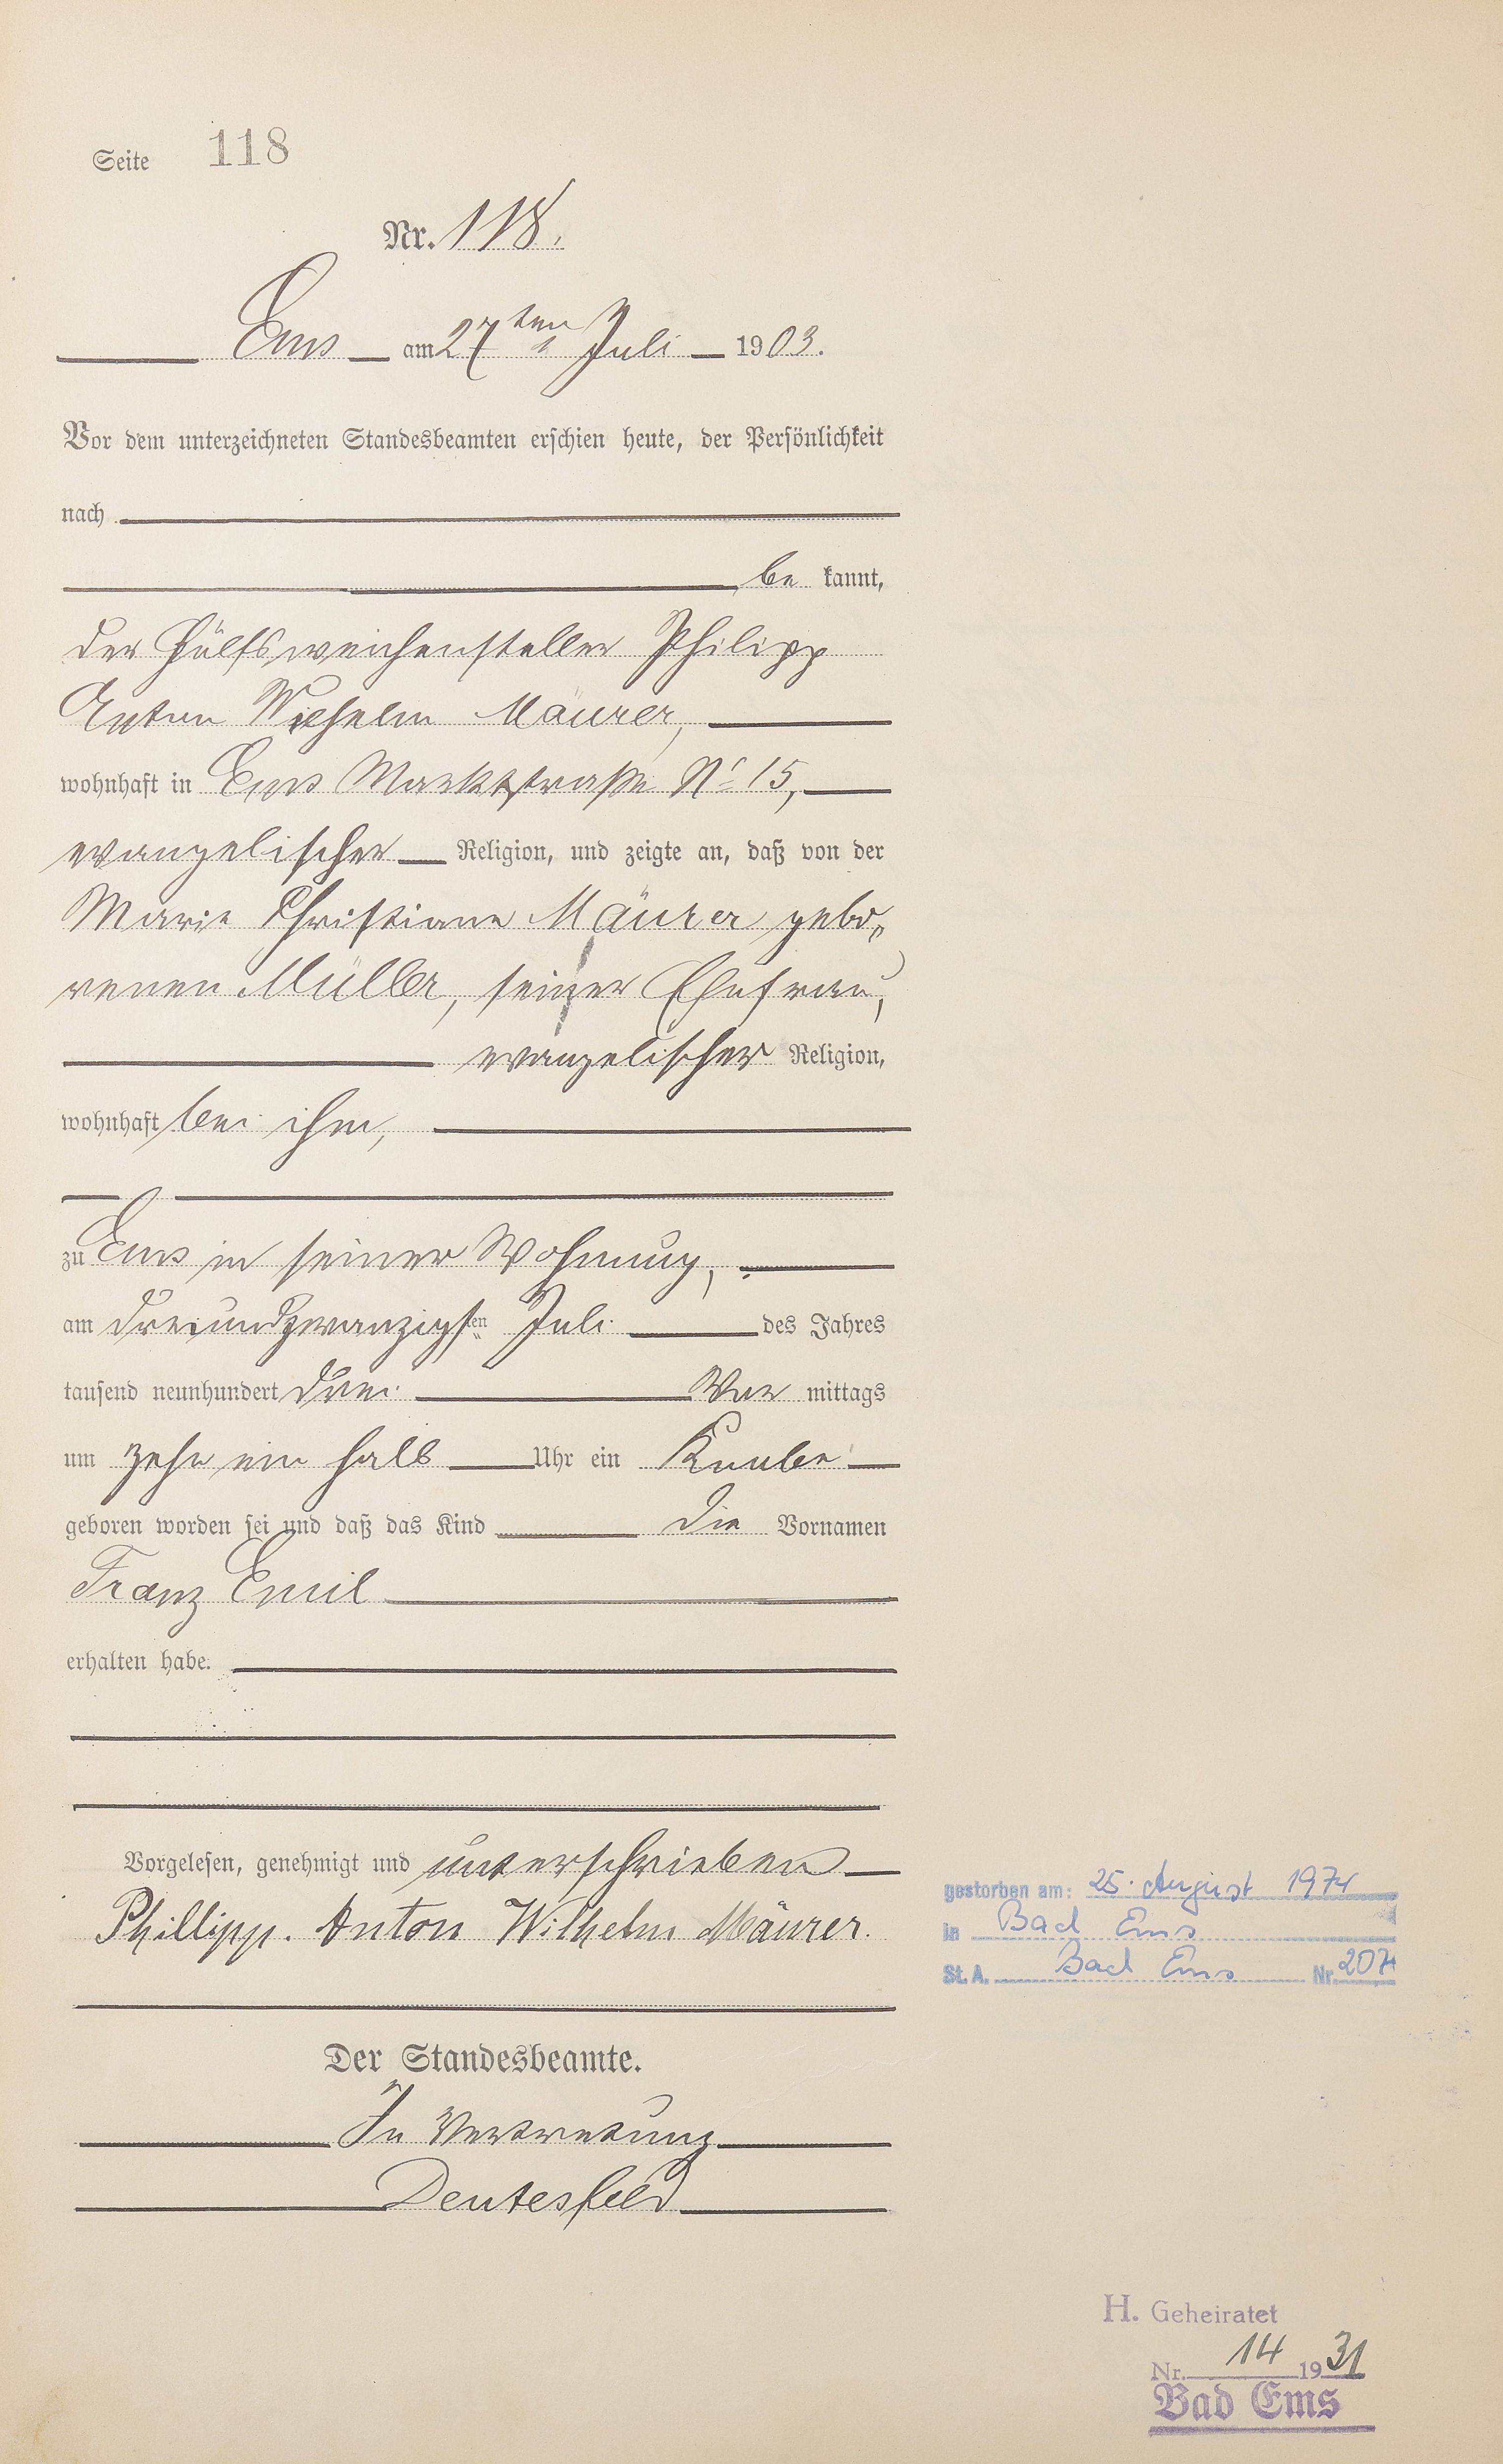 Seite 118
Nr. 118.
Ems am 27ten Juli 1903.
Vor dem unterzeichneten Standesbeamten erschien heute, der Persönlichkeit
nach
be kannt,
der Hülfsweichensteller Philipp
Anton Wilhelm Mäurer,
wohnhaft in Ems Marktstraße No 15,
evangelischer Religion, und zeigte an, daß von der
Marie Christiane Mäurer gebo„
renen Müller, seiner Ehefrau,
evangelischer Religion,
wohnhaft bei ihm,
zu Ems in seiner Wohnung,
am dreiundzwanzigsten Juli des Jahres
tausend neunhundert drei Vor mittags
um zehn ein halb Uhr ein Knabe
geboren worden sei und daß das Kind die Vornamen
Franz Emil
erhalten habe.
Vorgelesen, genehmigt und unterschrieben
Phillipp. Anton Wilhelm Mäurer.
gestorben am: 25. August 1974
in Bad Ems
St. A. Bad Ems Nr. 207
Der Standesbeamte.
In Vertretung
Deutesfeld
H. Geheiratet
Nr. 14 1931
Bad Ems